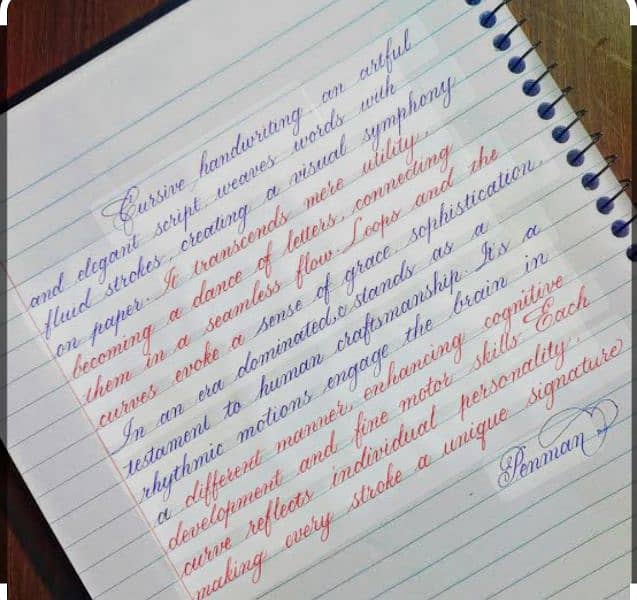 Cursive handwriting, an artful
and elegant script, weaves words with
fluid strokes, creating a visual symphony
on paper. It transcends mere utility,
becoming a dance of letters, connecting
them in a seamless flow. Loops and the
curves evoke a sense of grace, sophistication.
In an era dominated, c stands as a
testament to human craftsmanship. It's a
rhythmic motions engage the brain in
a different manner, enhancing cognitive
development and fine motor skills. Each
curve reflects individual personality,
making every stroke a unique signature
Penman